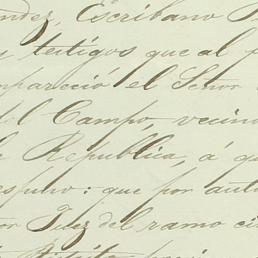 ndez, Escribano P
y testigos que al
mpareció el Señor
del Campo, vecino
Republica, á qu
espuso: que por auto
or Juez del ramo ci